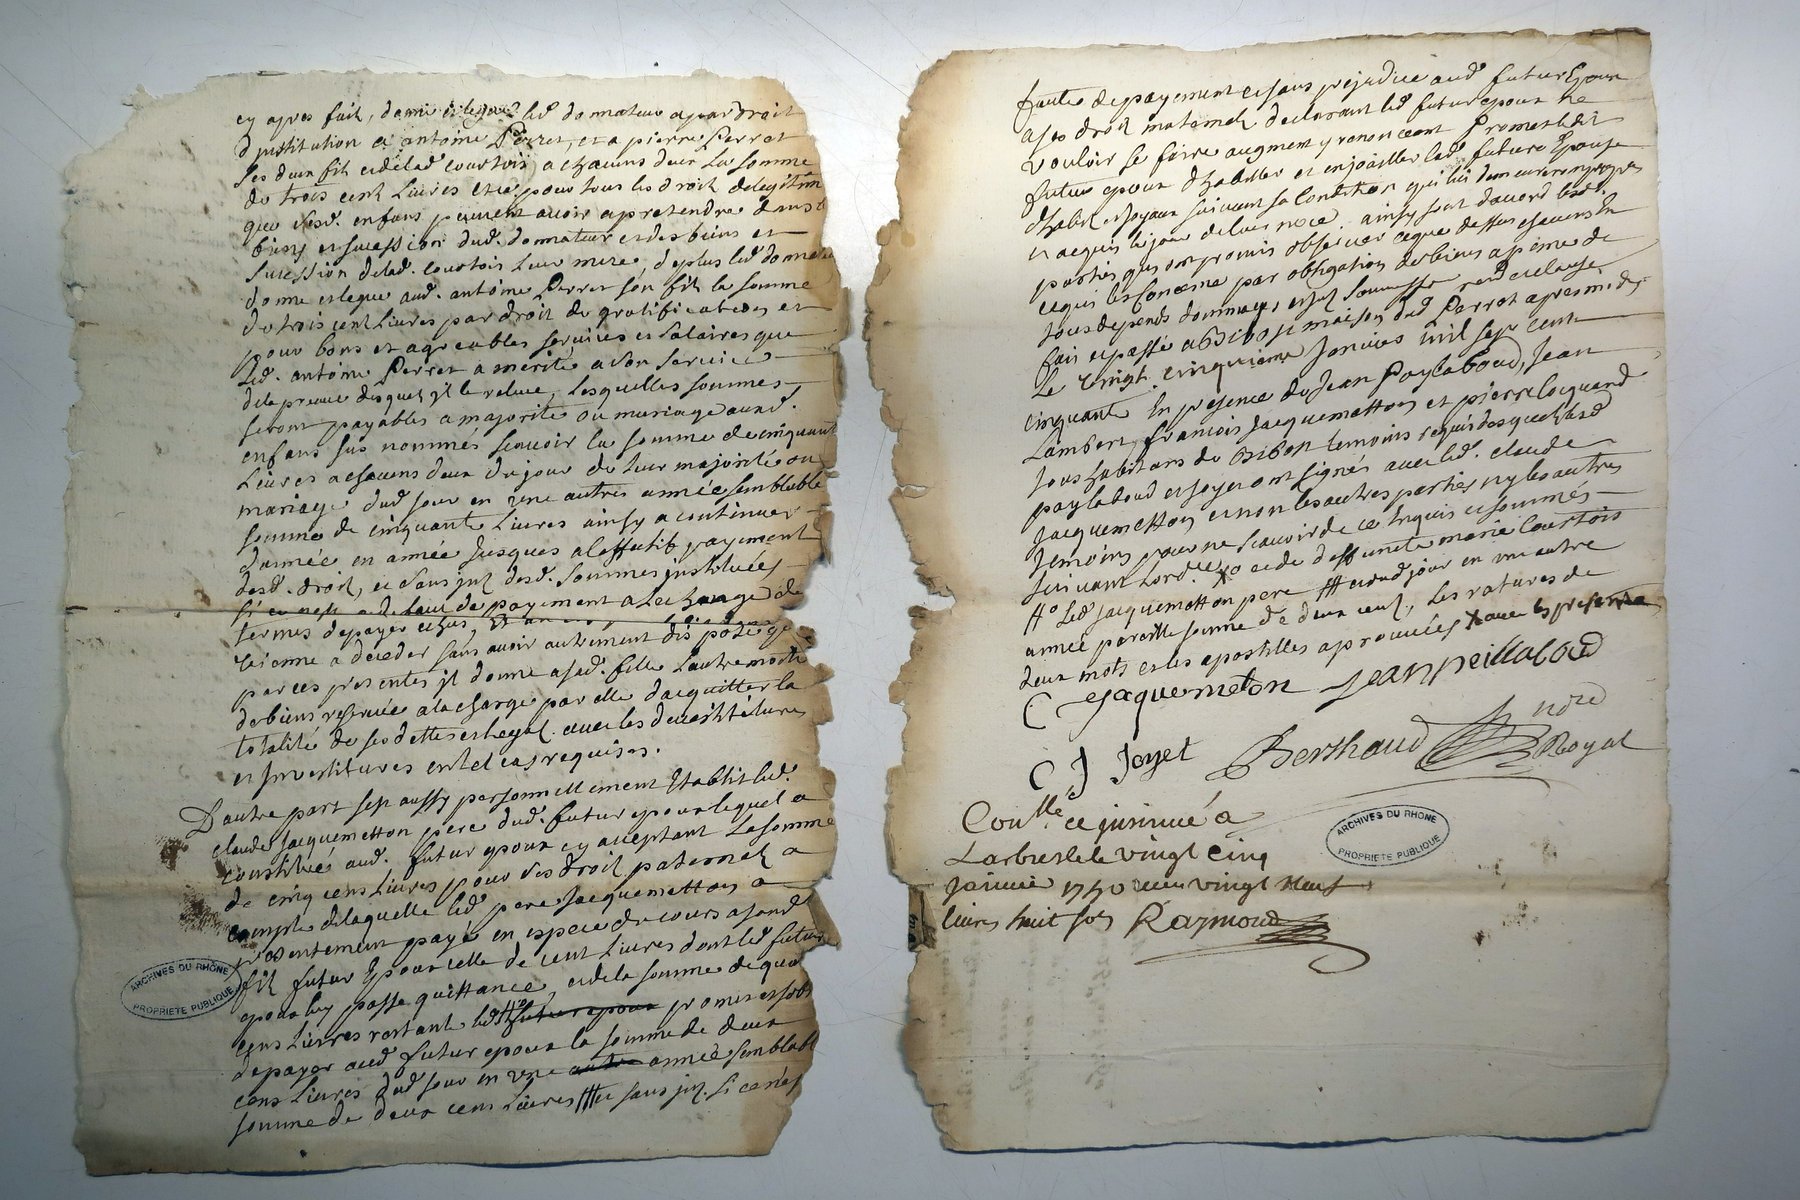 cy apres fait, donne et legue led donnateur a par droit
d'justitution a antoine Perret, et a pierre Perret
ses deux fils et de lad courtois a chacuns deux la somme
de trois cent livres et ce pour tous les droit de legitim
que sesd. enfans peuvent avoir a pretendre dans l
biens et sucession dud. donnateur et des biens et
sucession de lad. courtois leur mere, de plus led donnateu
donne et legue aud. antoine Perret son fils la somme
de trois cent livres par droit de gratification et
pour bons et agreables services et salaires que
led. antoine Perret a merité a son service
de la preuve desquels jl le releve, lesquelles sommes
seront payables a majorité ou mariage auxd.
enfans sus nommés scavoir la somme de cinquant
livres a chacuns deux du jour de leur majorité ou
mariage dud jour en une autres année semblable
somme de cinquante livres ainsy a continuer
dannée en année jusques a leffectif payement
desd. droit, et sans jnt desd. sommes justituées
si ce nest a deffaut de payement a lechange de
termes de payer echus,
vienne a deceder sans avoir autrement disposé
par ces presentes jl donne a sad. fille l'autre moitié
de biens reservée a la charge par elle dacquitter la
totalité de ses dettes et legats avec les
et jnvestitures en tel cas requises.
D'autre part sest aussy personnellement Etablit led.
claude Jacquemetton pere dud. futur epoux lequel a
constitué aud. futur epoux cy acceptant la somme
de cinq cens livres pour ses droit paternels a
compte de laquelle led pere Jacquemetton a
presentement payé en espece de cours a sond
fils futur Epoux celle de cent livres dont led futur
epoux luy passe quittance, et de la somme de quatre
cens livres restante led # futur epoux promet et sobl
de payer aud futur epoux la somme de deux
cens livres dud jour en une autre année semblabl
somme de deux cens livres ### et sans jnt. si ce nes
faute de payement et sans prejudice aud futur Epoux
a ses droit maternels declarant led futur epoux ne
vouloir se faire augment y renonceant Promet led
futur epoux d'habiller et enjoailler lad future Epouse
d'habit et joyaux suivant sa condition qui lui demeureront propres
et acquis le jour de leur noce. ainsy sont d'accord lesd.
parties qui ont promis observer ce que dessus chacuns en
ce qui les concerne par obligation de biens a peine de
tous depends dommages et jnt soumission renon et clauses
fait et passé a Bibost maison dud Perret apres midy
le vingt cinquieme Janvier mil sept cent
cinquante En presence de Jean Paylaboud, Jean
Lambert, francois Jacquemetton et pierre locquand
tous habitans de Bibost temoins requis desquels led
paylaboud et joyet ont signés avec led. claude
Jacquemetton et non les autres parties ny les autres
temoins pour ne scavoir de ce Enquis et sommés
suivant lord.ce X et de deffuncte marie Courtois
# Led Jacquemetton pere ### et dud jour en un autre
année pareille somme de deux cent, les ratures de
deux mots et les apostilles aprouvées X avec les presentes
C Jaquemeton Jean peillaboud
C J Joyet Berthaud nore
Royal
Conllé ce jnsinué a
Larbresle le vingt cinq
janvier 1750 recu vingt neuf
livres huit sols Raymond
ARCHIVES DU RHONE
PROPRIETE PUBLIQUE
ARCHIVES DU RHONE
PROPRIETE PUBLIQUE